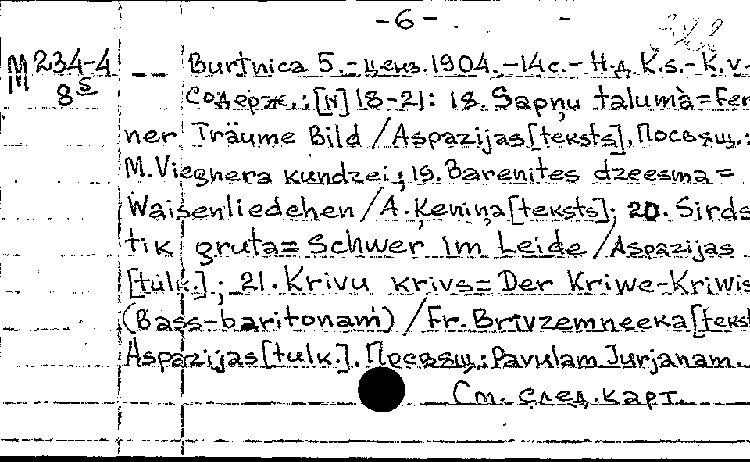 -6-
M 234-4 -- Burtnica 5.-ценз.1904.-14с.-Н.д. K.s.-K.v-
8⁵ Содерж.:[N] 18-21: 18. Sapņu talumà=Fer
ner Träume Bild /Aspazijas[teksts]. Посвящ.:
M. Viegnera kundzei; 19. Barenites dzeesma=
Waisenliedehen /A. Ķeniņa[teksts]; 20. Sirds
tik gruta= Schwer im Leide /Aspazijas
[tulk.]; 21. Krivu krivs= Der Kriwe-Kriwis
(Bass-baritonam) /Fr. Brivzemneeka[tekst
Aspazijas[tulk.]. Посвящ.: Pavulam Jurjanam.
См. след. карт.